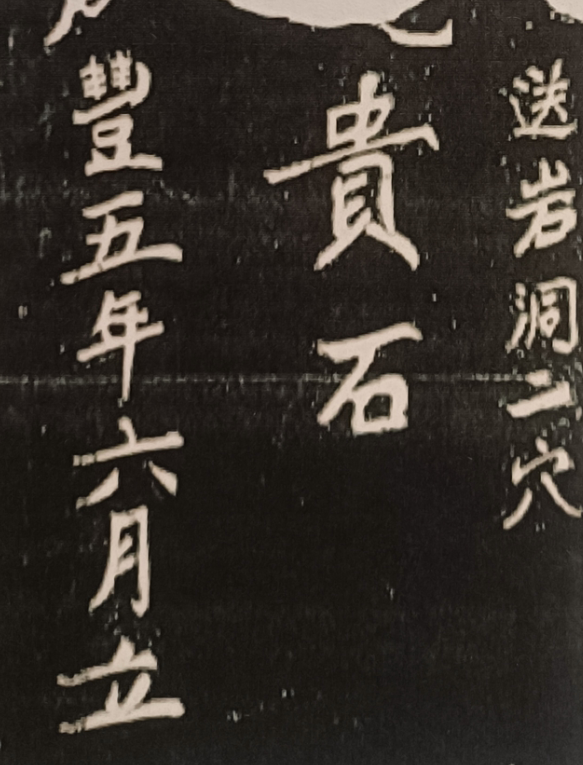 送岩洞二穴
貴石
豐五年六月立